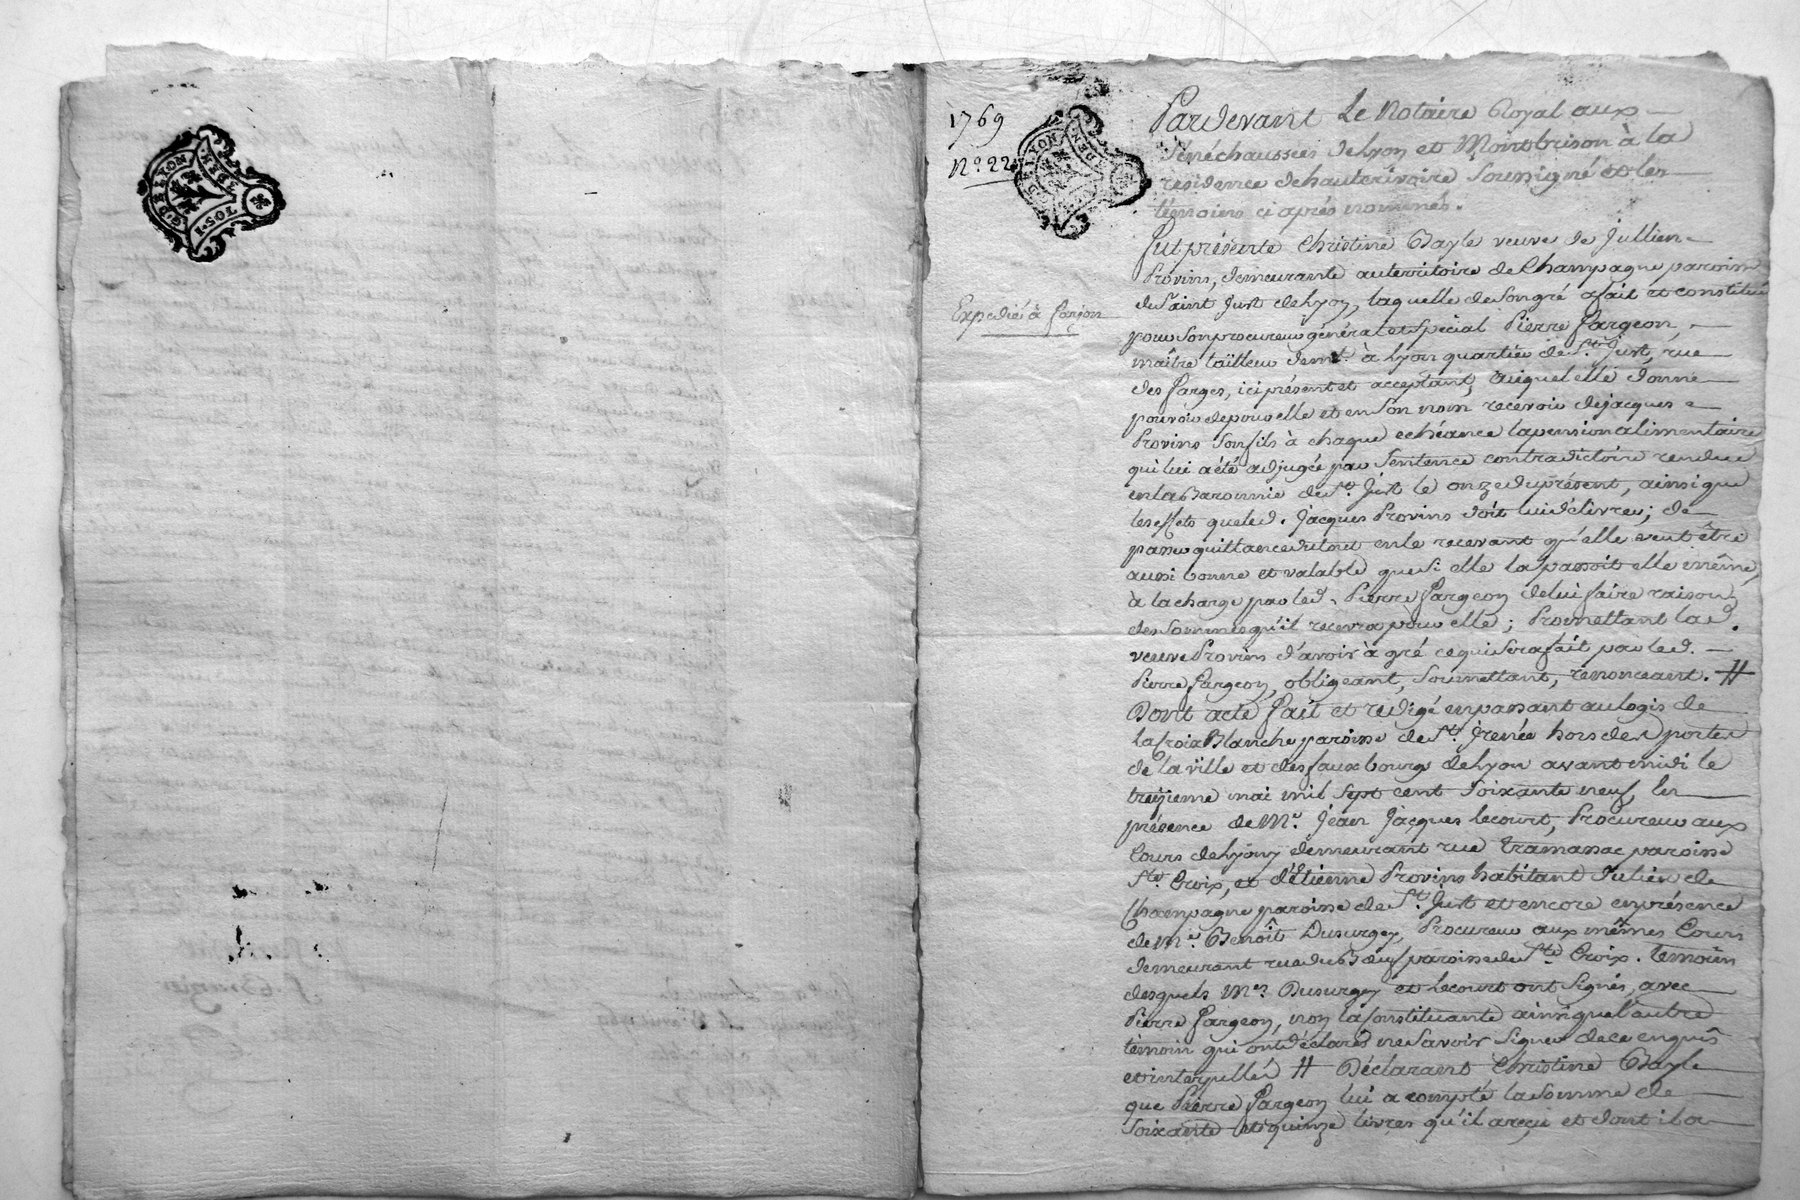 G. DE LYON
1. SOL
3. DEN.
1769
N.° 22
G. DE LYON
DEN.
Expedié à farjon
Pardevant Le Notaire Royal aux
Sénéchaussées de Lyon et Montbrison à la
résidence de hauterivoire Soussigné et les
témoins ci après nommés.
Fut présente Christine Bayle veuve de Jullien
Provins, demeurante au territoire de Champagne paroisse
de Saint Just de Lyon, laquelle de son gré a fait et constitué
pour Son procureur général et spécial Pierre fargeon,
maître tailleur demt. à Lyon quartier de St. Just, rue
des farges, ici présent et acceptant, auquel elle donne
pouvoir de pour elle et en Son nom recevoir de jacques
Provins Son fils à chaque echéance la pension alimentaire
qui lui a été adjugée par Sentence contradictoire rendue
en la Baronnie de St. Just le onze du présent, ainsi que
les effets que led. Jacques Provins doit lui délivrer; de
passer quittance du tout en le recevant qu'elle veut être
aussi bonne et valable que Si elle la passoit elle même,
à la charge par led. Pierre fargeon de lui faire raison
des Sommes qu'il recevra pour elle; Promettant lad.
veuve Provins d'avoir à gré ce qui Sera fait par led.
Pierre fargeon, obligeant, Soumettant, renonceant. #
Dont acte fait et redigé en passant au logis de
la Croix Blanche paroisse de St. Irenée hors des portes
de la ville et des fauxbourgs de Lyon avant midi le
treizieme mai mil sept cent Soixante neuf, en
présence de Me. Jean Jacques Lecourt, Procureur aux
Cours de Lyon, demeurant rue tramassac paroisse
Ste. Croix, et d'étienne Provins habitant du lieu de
Champagne paroisse de St. Just et encore en présence
de Me. Benoît Dusurgey, Procureur aux mêmes Cours
demeurant rue du Bœuf paroisse de Ste. Croix. temoins
desquels Mes. Dusurgey et Lecourt ont Signés, avec
Pierre fargeon, non la Constituante ainsi que l'autre
témoin qui ont déclarés ne Savoir Signer de ce enquis
et interpellés # Déclarant Christine Bayle
que Pierre fargeon lui a compté la Somme de
Soixante et quinze livres qu'il a reçu et dont il a